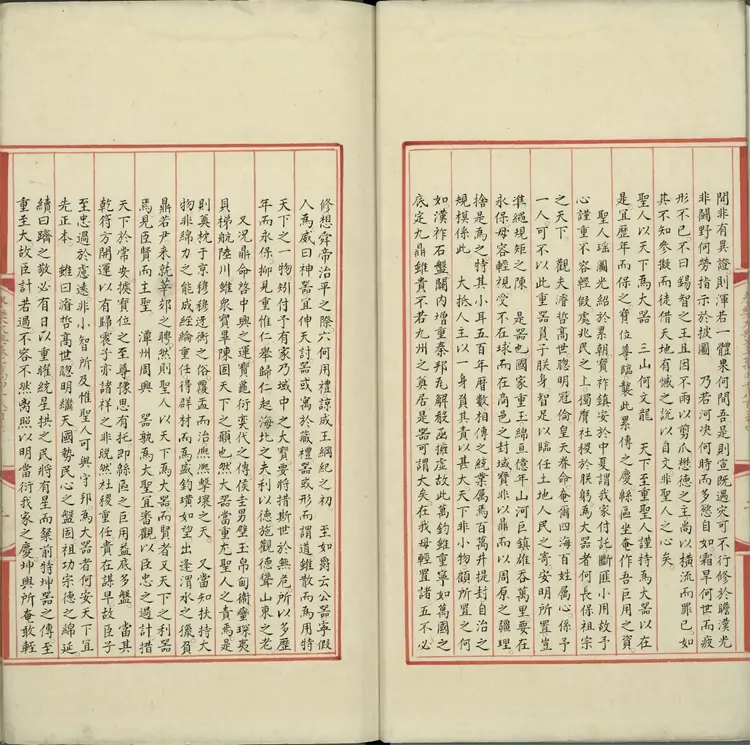 間非有異證則渾若一體果何間吾是則宣誼遇宋可不行修於瞻漢光
非鬪野何勞指示於披圖　乃若河決何時而多愆自如霜旱何世而疲
形不已不曰錫智之王且因不雨以剪爪懋德之主高以橫流而罪已如
其不知參擬而徒借天地有憾之說以自文非聖人之心矣
聖人以天下為大器　三山何文龍　天下至重聖人謹持為大器以在
是宜歷年而保之寶位尊臨襲此累傳之慶縣區坐奄作吾巨用之資
聖人瑤圖光紹於累朝寶祚鎮安於中夏謂我家付託斷匪小用故予
心謹重不容輕假處兆民之上獨膺社稷於朕躬為大器者何長保祖宗
之天下　觀夫濬哲高世聰明冠倫皇天眷命奄爾四海百姓属心係予
一人可不以此重器負子朕身智足以臨任土地人民之寄安明所置豈
準繩規矩之陳　是器也國家重玉綿亘億年山河巨鎮雄吞萬里要在
永保毋容輕視受不在球而在高邑之封域寶非以鼎而以周原之疆理
捨是為之特其小耳五百年曆數相傳之統業属焉百萬井提封自治之
規模係此　大抵人主以一身負其責以甚大天下非小物顧所置之何
如漢祚石盤關內增重秦邦瓦解殽函摧虛故此萬鈞維重寧如萬國之
底定九鼎維貴不若九州之奠居是器可謂大矣在我毋輕置諸五不必
修想舜帝治平之際六何用禮諒成王綱紀之初　至如爵云公器寧假
人焉威曰神器宜伸天討器或寓於藏禮器或形而謂道維散而為用特
天下之一物矧付于有家乃域中之大寶要將措斯世於無危所以多歷
年而永保抑見重惟仁舉歸仁起海北之夫利以德施觀德聳山東之老
又况鼎命啓中興之運寶龜衍奕代之傳侯圭男璧玉帛甸衛蠙琛夷
貝梯航陸川維衆寶畢陳固天下之願也然大器當重尤聖人之責焉是
則奠枕于京穆穆迓衡之俗覆盂而治熈熈擊壤之天　又當知扶持大
物非綿力之能成經綸重任得群材而為盛釣璜如望出逢渭水之獵負
鼎若尹來就莘郊之聘然則聖人以天下為大器而賢者又天下之利器
焉見臣賢而主聖　潭州周興　器孰為大聖宜審觀以臣忠之過計措
天下於常安據寶位之至尊豫思有托即縣區之巨用益底多盤　當其
乾符方開運以有歸震子亦諸祥之非晩然社稷重任貴在諶早故臣子
至忠過於慮遠非小智所及惟聖人可與守邦為大器者何安天下宜
先正本　維曰濬哲高世聰明繼天國勢民心之盤固祖功宗德之綿延
續曰躋之敬必有日以重曜統星拱之民將有星而粲前特坤器之傳至
重至大故臣計若過不容不然离照以明當衍我家之慶坤輿所奄敢輊